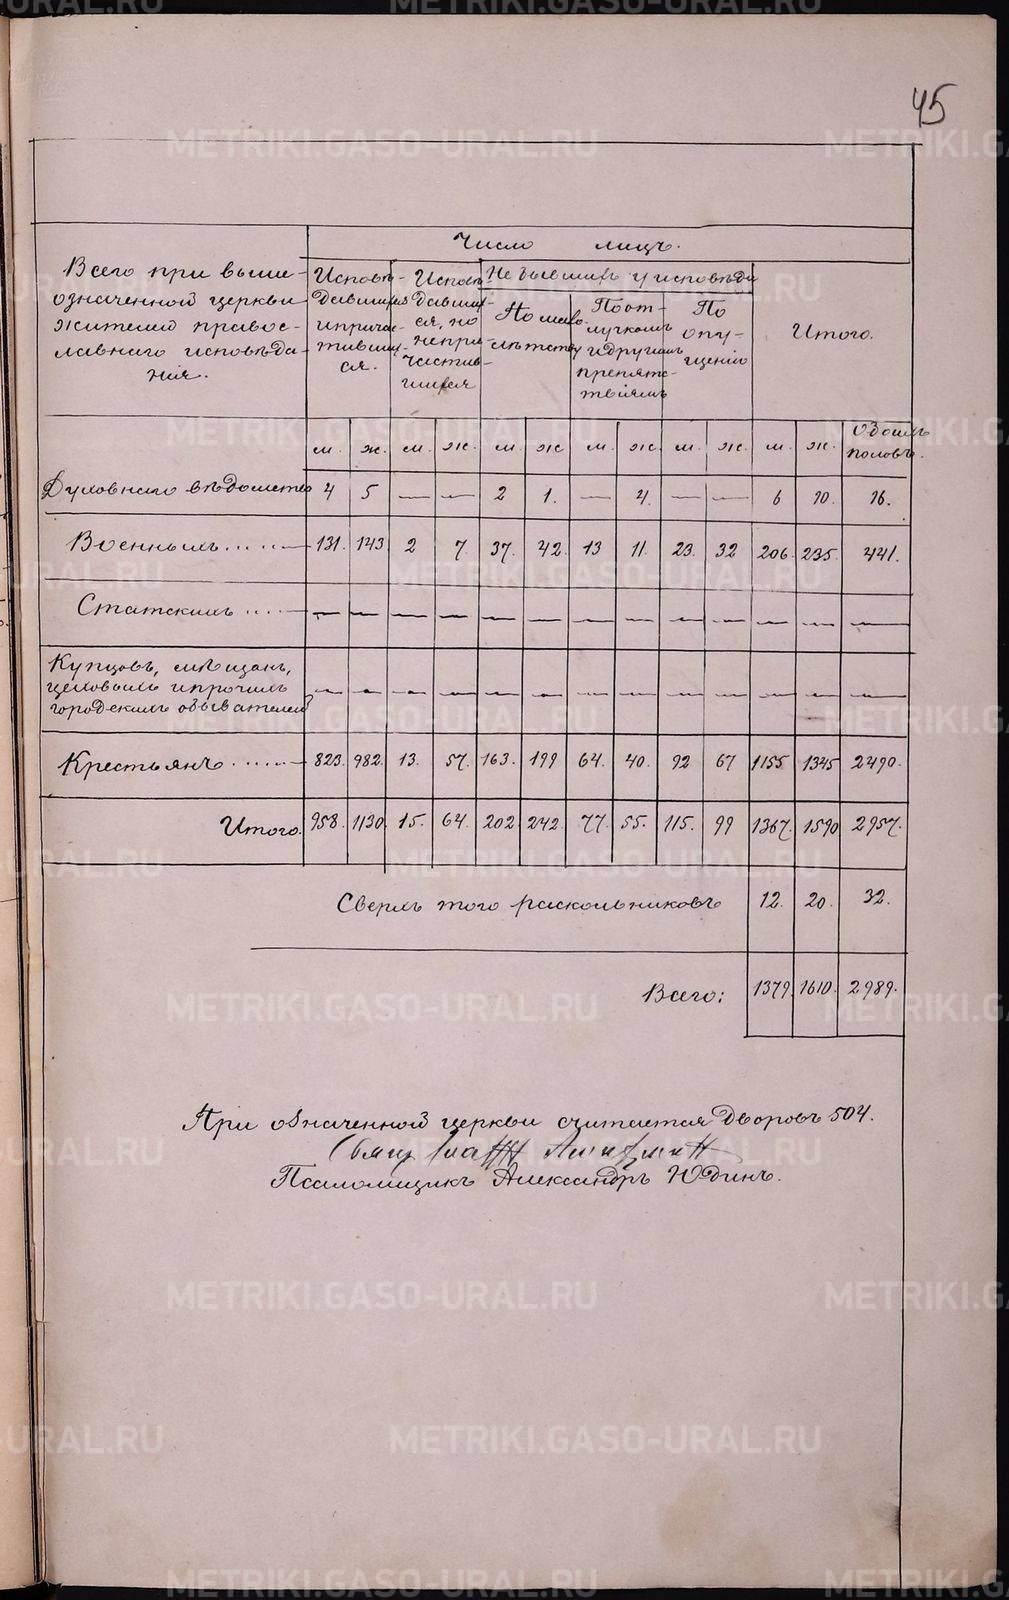 45
Число лицъ.
Всего при выше-
означенной церкви
жителей правос-
лавнаго исповѣда-
нія.
Исповѣ-
давшихся
и причас-
тивших-
ся.
Исповѣ-
давших-
ся, но
непри-
частив-
шихся
Не бывшихъ у исповѣди
По мало-
лѣтству
По от-
лучкамъ
и другимъ
препятс-
твіямъ
По
опу-
щенію
Итого.
м. ж. м. ж. м. ж. м. ж. м. ж. м. ж. Обоихъ половъ.
Духовнаго вѣдомства 4 5 — — 2 1. — 4. — — 6 10 16.
Военныхъ . . . . . 131. 143 2 7. 37. 42. 13 11. 23. 32 206. 235. 441.
Статскихъ . . . . — — — — — — — — — — — — —
Купцовъ, мѣщанъ,
цеховыхъ и прочихъ
городскихъ обывателей — — — — — — — — — — — — —
Крестьянъ . . . . . 823. 982. 13. 57. 163. 199 64. 40. 92 67 1155. 1345 2490.
Итого. 958. 1130. 15. 64. 202 242. 77. 55. 115. 99 1367. 1590 2957.
Сверхъ того раскольниковъ 12. 20. 32.
Всего: 1379. 1610. 2989.
При означенной церкви считается Дворовъ 504.
Псаломщикъ Александръ Юдинъ.
METRIKI.GASO-URAL.RU